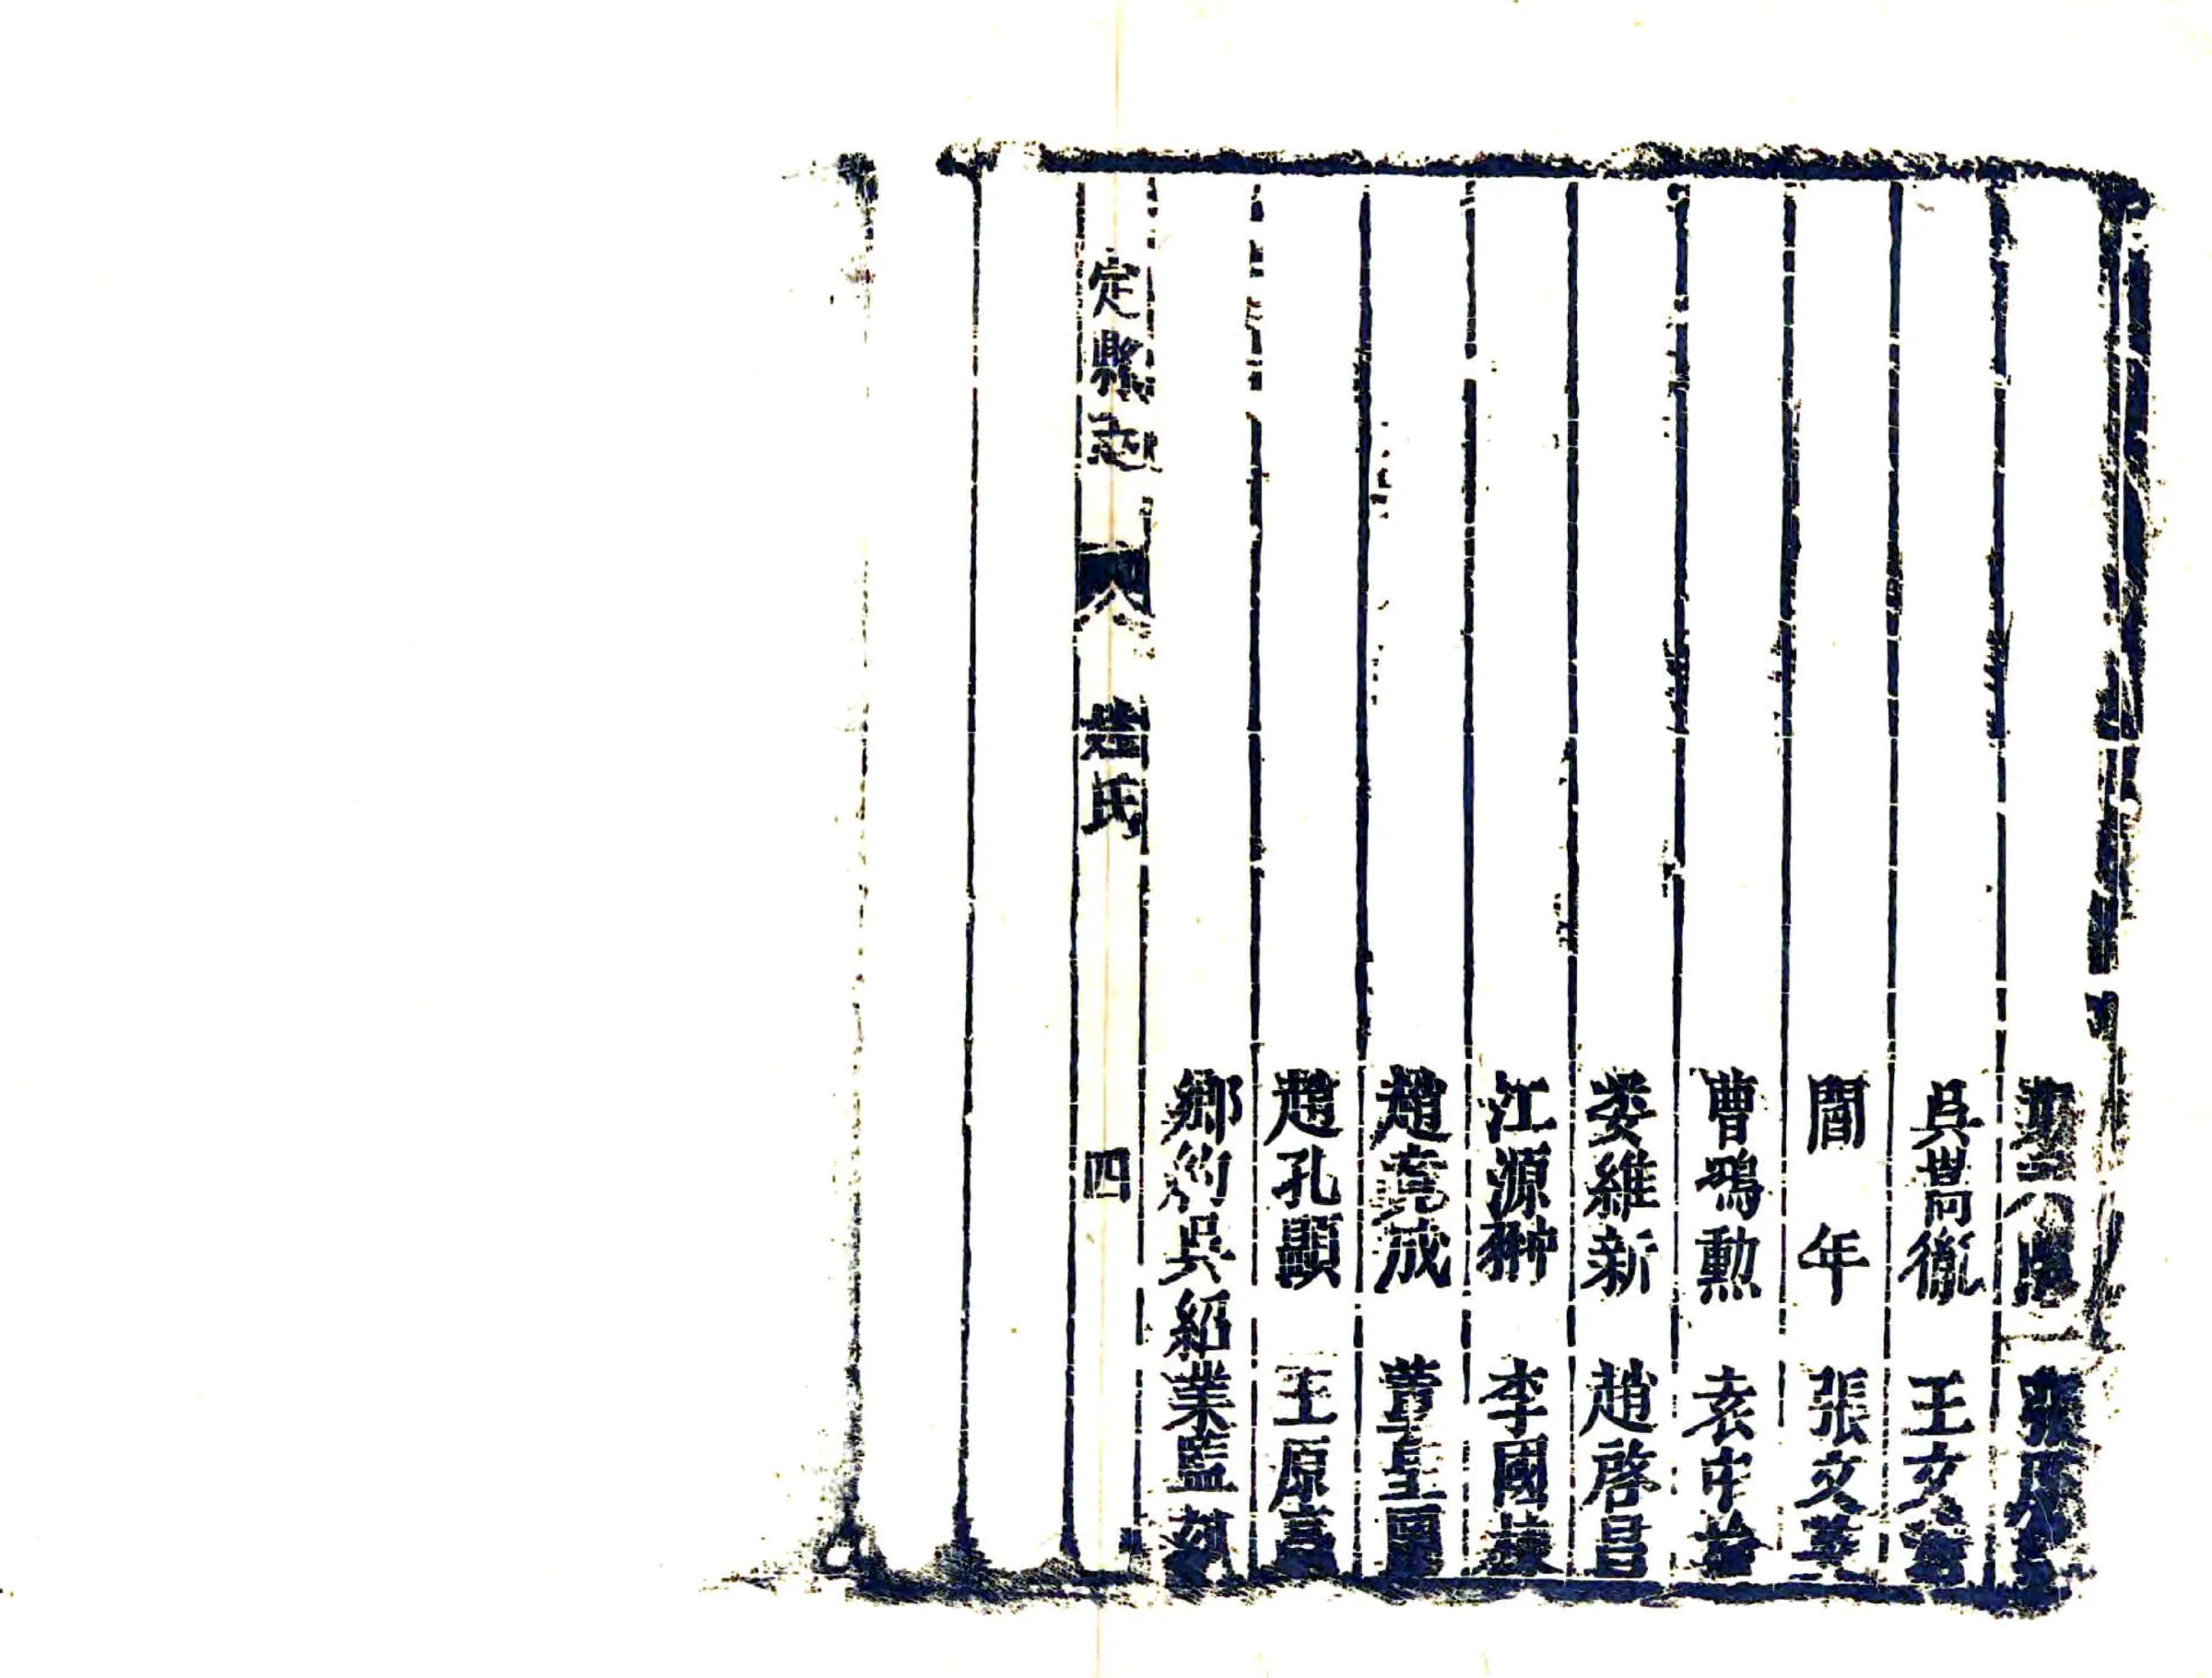 張
吳嵩胤 王文
閻年 張文英
曹鳴勲 袁中
婁維新 趙啓昌
江源翀 李國棟
趙竟成 董皇
趙孔顯 王原
鄉約吳紹業監刻
定縣志 姓氏 四